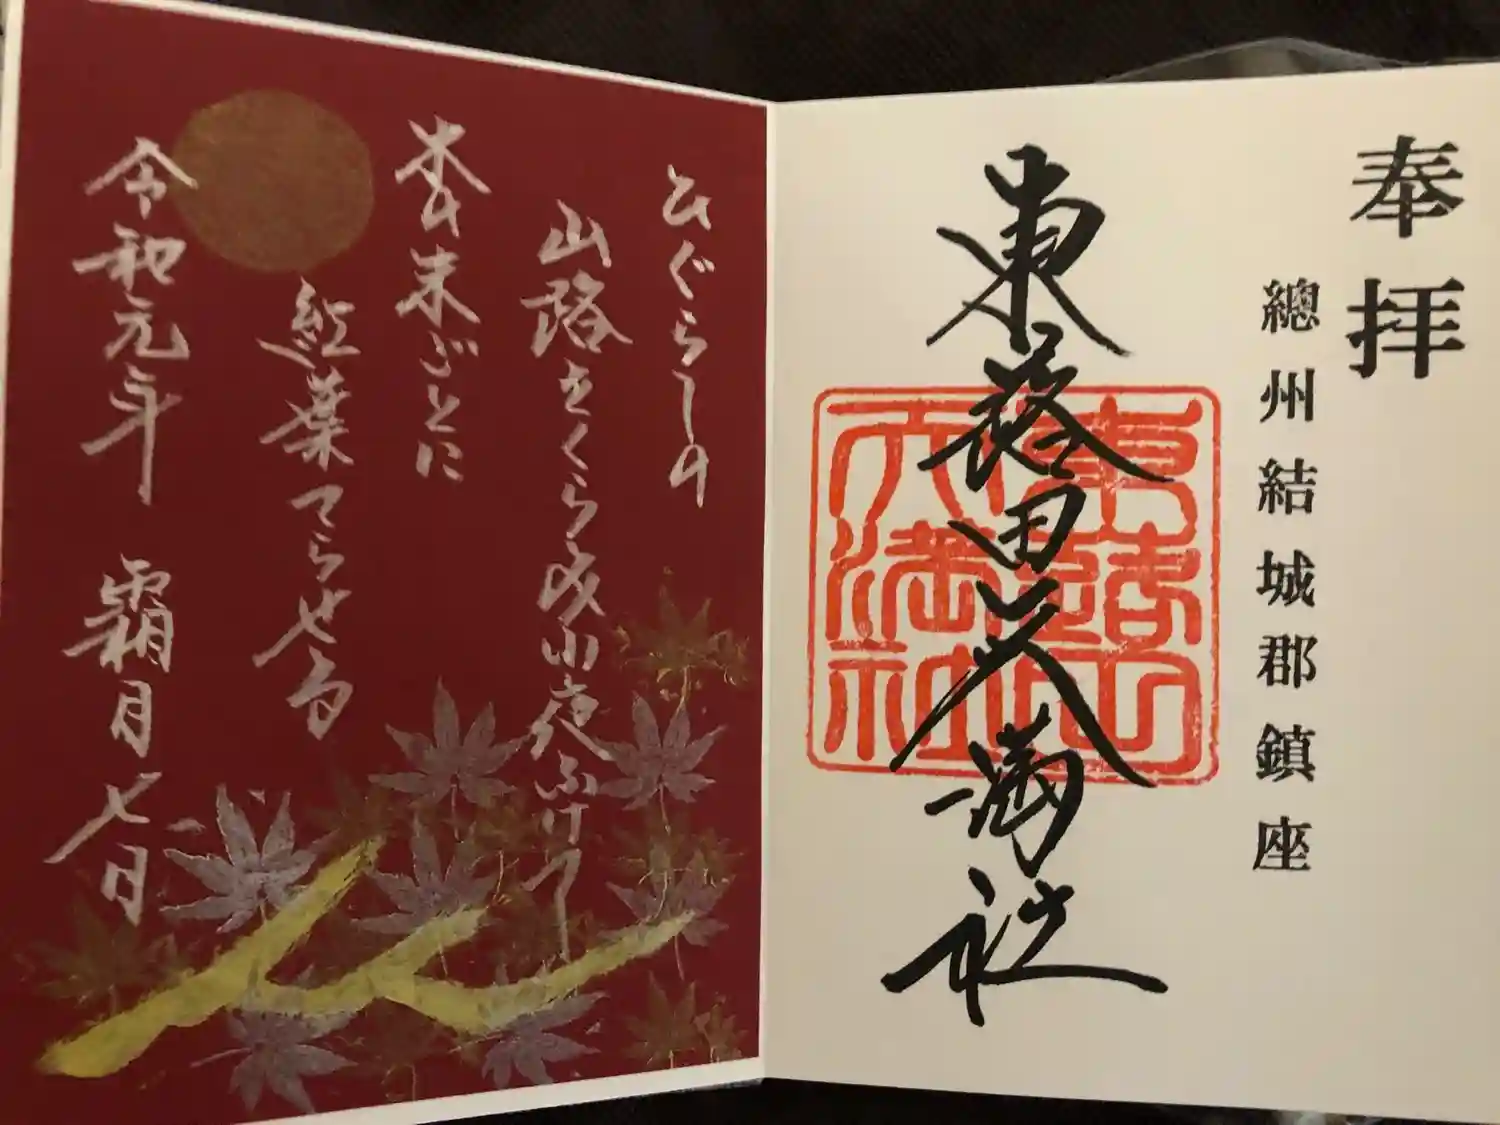 奉拝
總州結城郡鎮座
東蕗田天満社
東蕗田天満社
ひぐらしの
山路をくらみ小夜ふけて
木の末ごとに
紅葉てらせる
令和元年 霜月七日